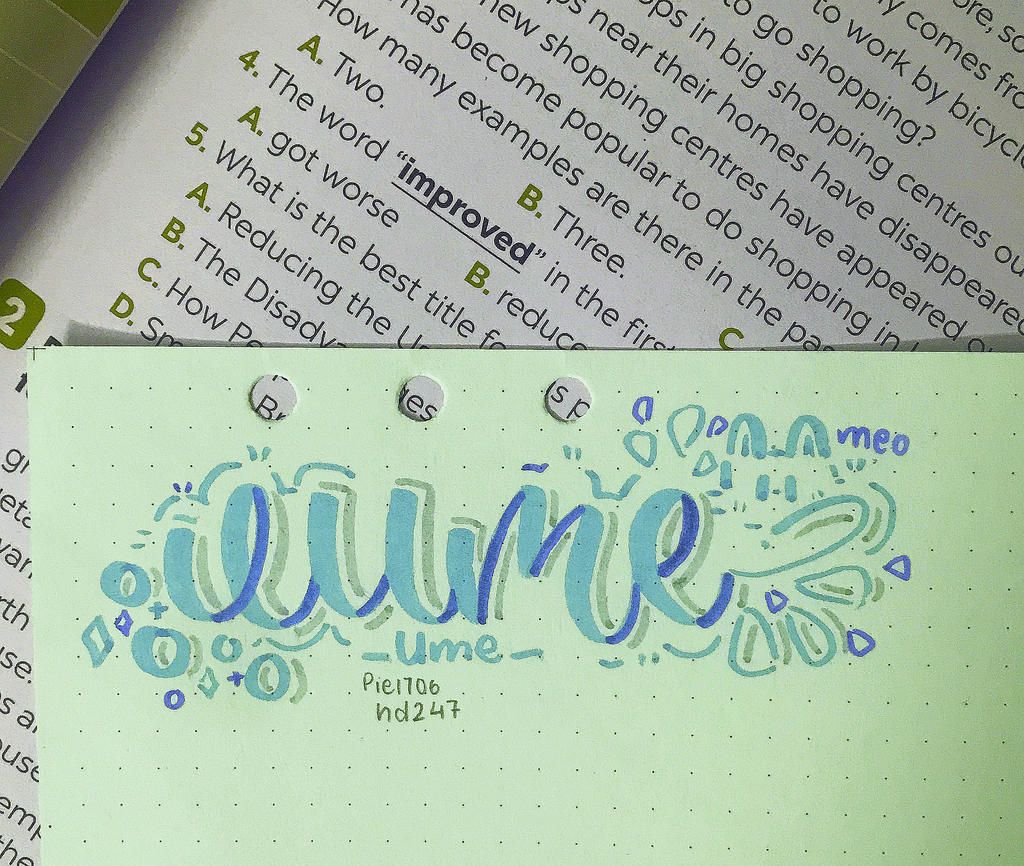 comes
to work by bicycle
to go shopping?
in big shopping centres
near their homes have disappeared
new shopping centres have appeared
has become popular to do shopping in
How many examples are there in the
A. Two. B. Three. C
4. The word “improved” in the first
A. got worse B. reduce
5. What is the best title
A. Reducing the
B. The
C. How
D.
2
meo
ume
-Ume-
Pie1706
hd247